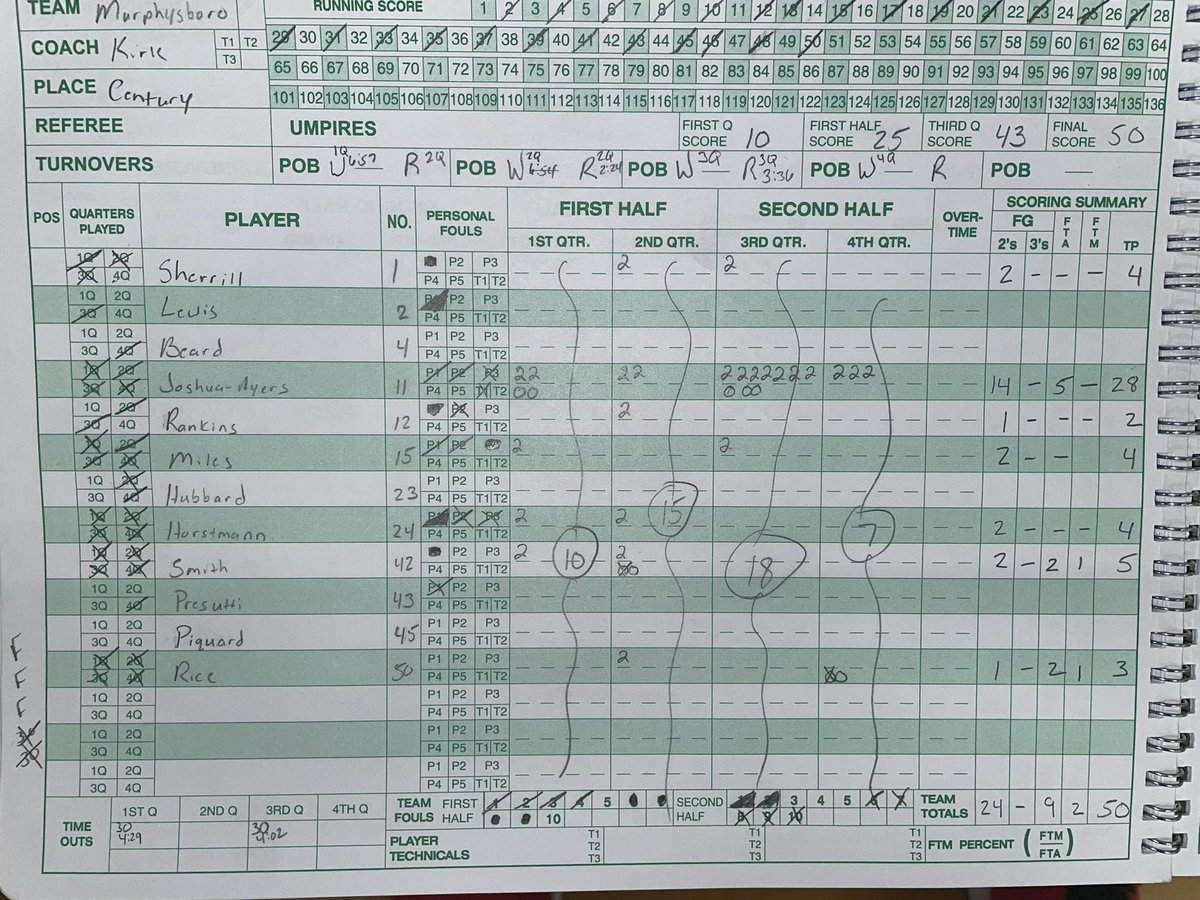 TEAM Murphysboro RUNNING SCORE 1 2 3 4 5 6 7 8 9 10 11 12 13 14 15 16 17 18 19 20 21 22 23 24 25 26 27 28
COACH Kirk T1 T2 T3 29 30 31 32 33 34 35 36 37 38 39 40 41 42 43 44 45 46 47 48 49 50 51 52 53 54 55 56 57 58 59 60 61 62 63 64
65 66 67 68 69 70 71 72 73 74 75 76 77 78 79 80 81 82 83 84 85 86 87 88 89 90 91 92 93 94 95 96 97 98 99 100
PLACE Century 101 102 103 104 105 106 107 108 109 110 111 112 113 114 115 116 117 118 119 120 121 122 123 124 125 126 127 128 129 130 131 132 133 134 135 136
REFEREE UMPIRES FIRST Q SCORE 10 FIRST HALF SCORE 25 THIRD Q SCORE 43 FINAL SCORE 50
TURNOVERS POB 1Q 6:57 R 2Q POB W 2Q 6:54 R 2Q 2:24 POB W 3Q R 3Q 3:36 POB W 4Q R POB —
POS QUARTERS PLAYED PLAYER NO. PERSONAL FOULS FIRST HALF SECOND HALF OVER-TIME SCORING SUMMARY
1ST QTR. 2ND QTR. 3RD QTR. 4TH QTR. FG 2's 3's FTA FTM TP
1Q 2Q 3Q 4Q Sherrill 1 P2 P3 P4 P5 T1 T2 2 2 2 - - - 4
1Q 2Q 3Q 4Q Lewis 2 P1 P2 P3 P4 P5 T1 T2
1Q 2Q 3Q 4Q Beard 4 P1 P2 P3 P4 P5 T1 T2
1Q 2Q 3Q 4Q Joshua-Ayers 11 P1 P2 P3 P4 P5 T1 T2 22 00 22 2222222 0 00 222 14 - 5 - 28
1Q 2Q 3Q 4Q Rankins 12 P2 P3 P4 P5 T1 T2 2 1 - - - 2
1Q 2Q 3Q 4Q Miles 15 P1 P2 P4 P5 T1 T2 2 2 2 - - 4
1Q 2Q 3Q 4Q Hubbard 23 P1 P2 P3 P4 P5 T1 T2
1Q 2Q 3Q 4Q Horstmann 24 P1 P2 P3 P4 P5 T1 T2 2 2 15 7 2 - - - 4
1Q 2Q 3Q 4Q Smith 42 P2 P3 P4 P5 T1 T2 2 10 2 00 18 2 - 2 1 5
1Q 2Q 3Q 4Q Presutti 43 P1 P2 P3 P4 P5 T1 T2
1Q 2Q 3Q 4Q Piquard 45 P1 P2 P3 P4 P5 T1 T2
F 1Q 2Q 3Q 4Q Rice 50 P1 P2 P3 P4 P5 T1 T2 2 00 1 - 2 1 3
F 1Q 2Q 3Q 4Q P1 P2 P3 P4 P5 T1 T2
F 1Q 2Q 3Q 4Q P1 P2 P3 P4 P5 T1 T2
1Q 2Q 3Q 4Q P1 P2 P3 P4 P5 T1 T2
TIME OUTS 1ST Q 2ND Q 3RD Q 4TH Q TEAM FOULS FIRST HALF 1 2 3 4 5 10 SECOND HALF 3 4 5 6 7 8 9 10 TEAM TOTALS 24 - 9 2 50
30 4:29 30 PLAYER TECHNICALS T1 T2 T3 T1 T2 T3 T1 T2 T3 FTM PERCENT ( FTM FTA )